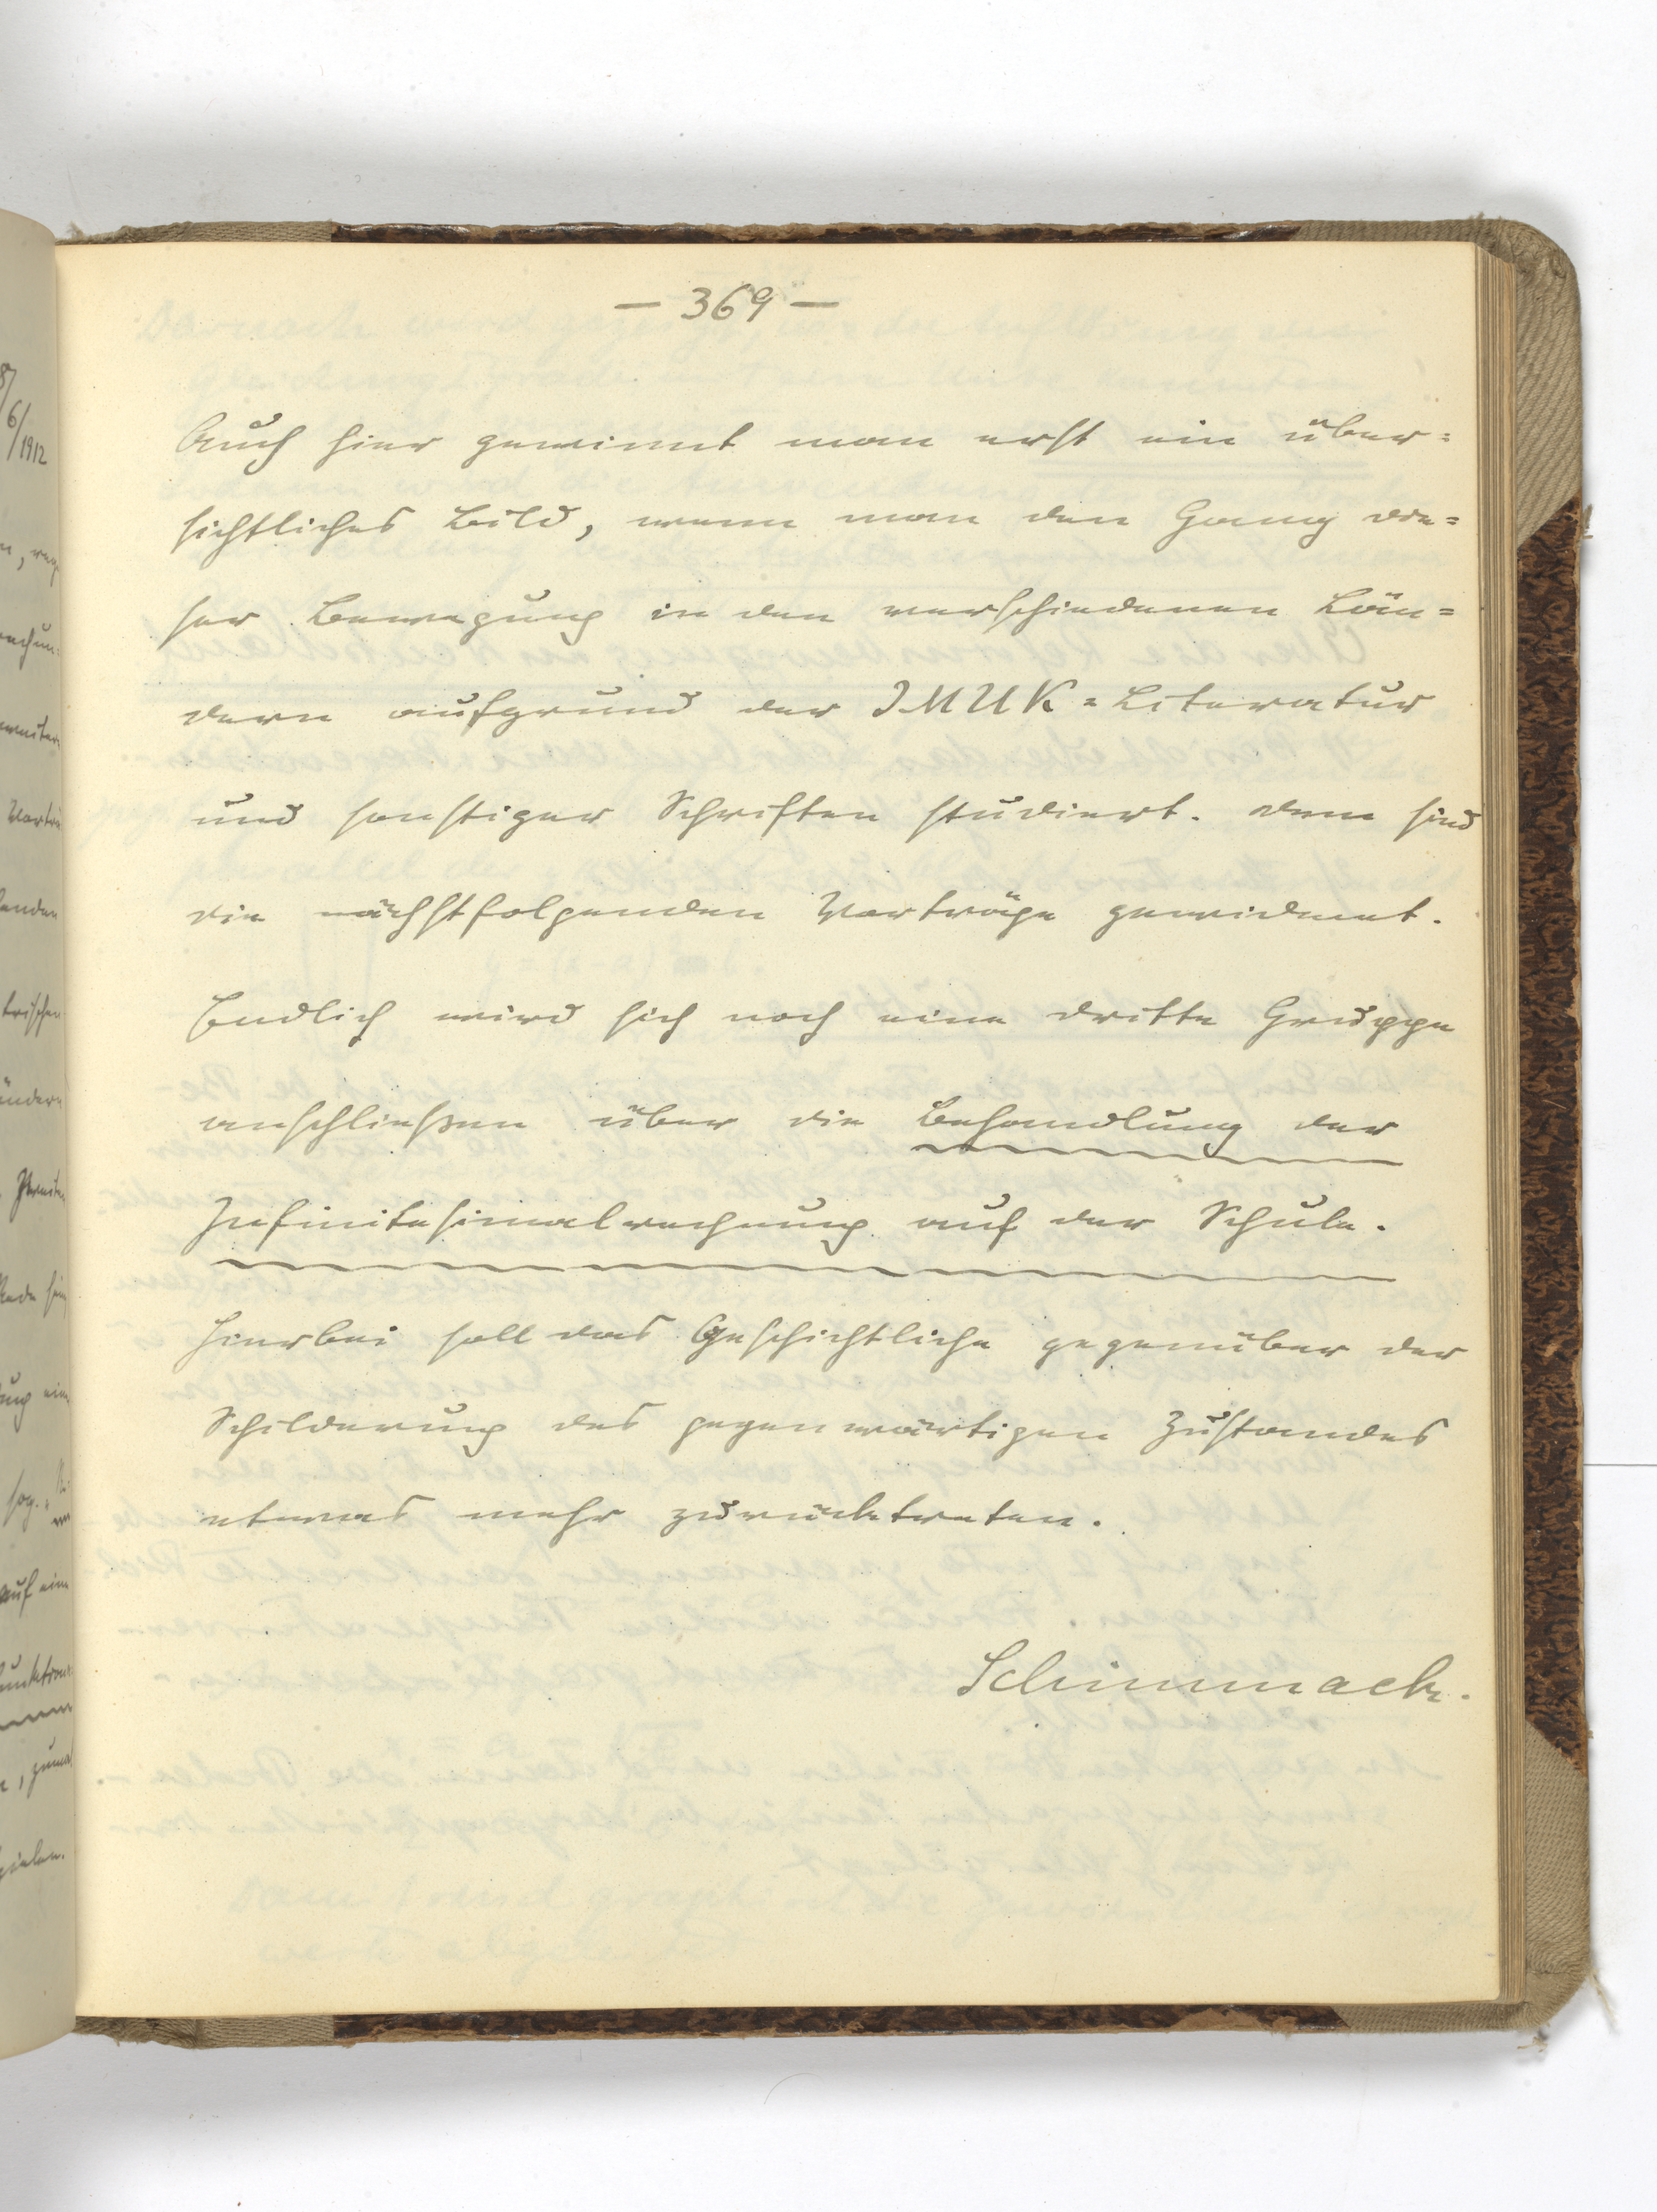 – 369 –
Auch hier gewinnt man erst ein über=
sichtliches Bild, wenn man den Gang die=
ser Bewegung in den verschiedenen Län=
dern aufgrund der IMUK=Literatur
und sonstiger Schriften studiert. Dem sind
die nächstfolgenden Vorträge gewidmet.
Endlich wird sich noch eine dritte Gruppe
anschließen über die Behandlung der
Infinitesimalrechnung auf der Schule.
Hierbei soll das Geschichtliche gegenüber der
Schilderung des gegenwärtigen Zustandes
etwas mehr zurücktreten.
Schimmack.